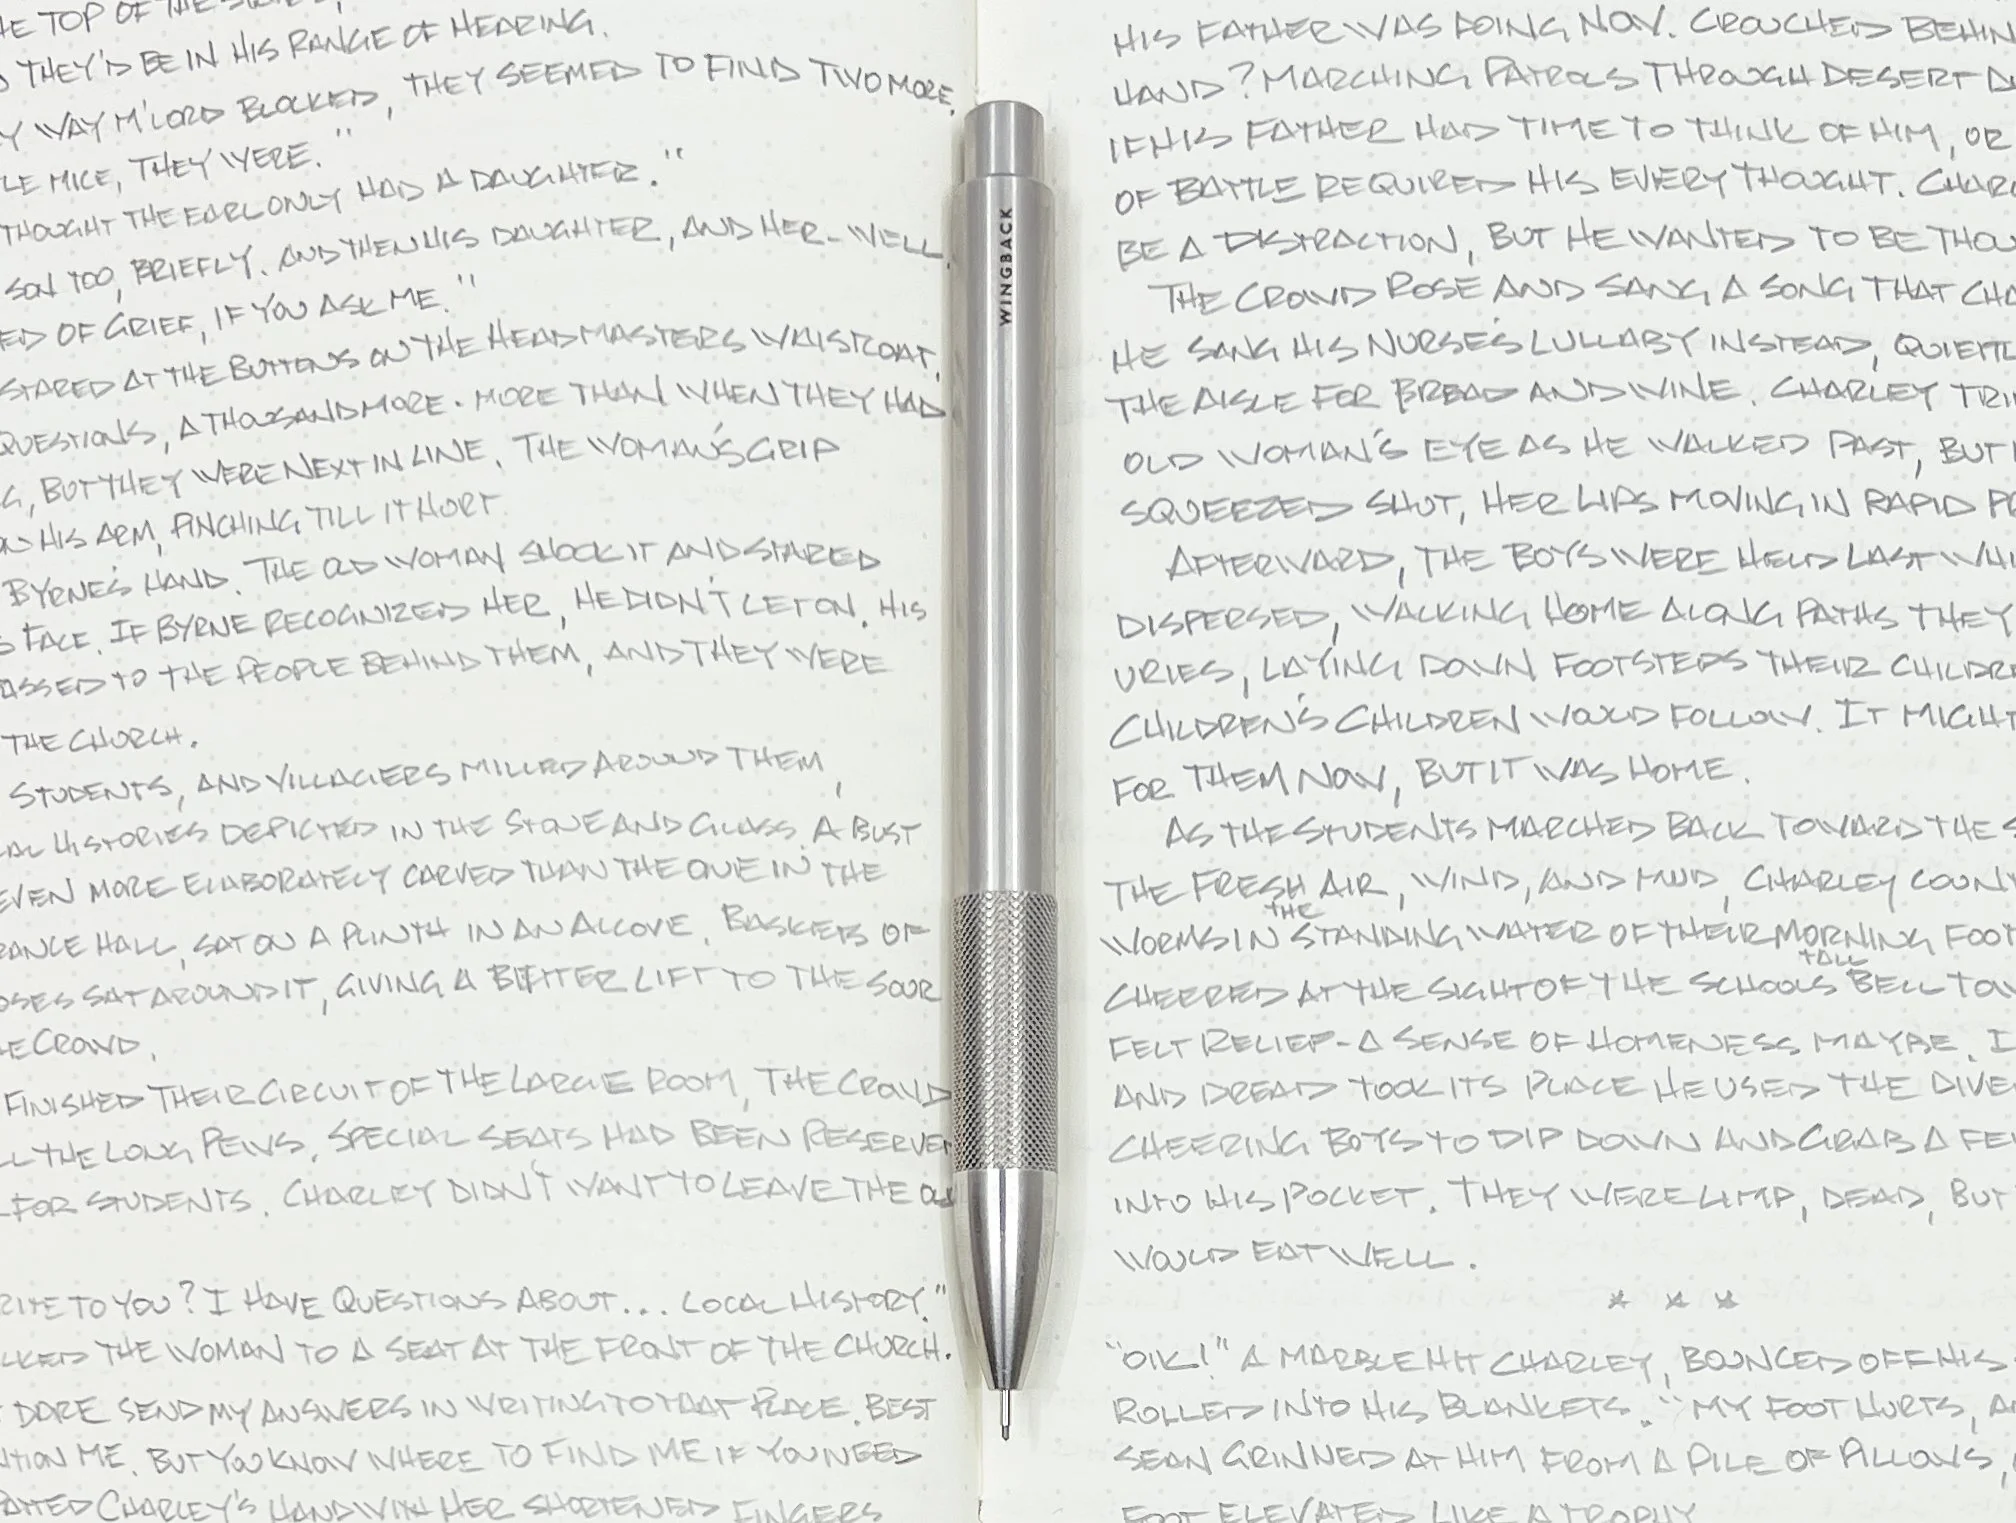 HE TOP OF THE
THEY'D BE IN HIS RANGE OF HEARING.
Y WAY M'LORD BLOCKED, THEY SEEMED TO FIND TWO MORE.
LE MICE, THEY WERE."
THOUGHT THE EARL ONLY HAD A DAUGHTER."
SON TOO, BRIEFLY. AND THEN HIS DAUGHTER, AND HER - WELL.
ED OF GRIEF, IF YOU ASK ME."
STARED AT THE BUTTONS ON THE HEADMASTERS WAISTCOAT.
QUESTIONS, A THOUSAND MORE. MORE THAN WHEN THEY HAD
G, BUT THEY WERE NEXT IN LINE. THE WOMAN'S GRIP
ON HIS ARM, PINCHING TILL IT HURT
BYRNE'S HAND. THE OLD WOMAN SHOOK IT AND STARED
S FACE. IF BYRNE RECOGNIZED HER, HE DIDN'T LET ON. HIS
ASSED TO THE PEOPLE BEHIND THEM, AND THEY WERE
THE CHURCH.
STUDENTS, AND VILLAGERS MILLED AROUND THEM,
AL HISTORIES DEPICTED IN THE STONE AND GLASS. A BUST
EVEN MORE ELABORATELY CARVED THAN THE ONE IN THE
RANCE HALL, SAT ON A PLINTH IN AN ALCOVE. BASKETS OF
OSES SAT AROUND IT, GIVING A BITTER LIFT TO THE SOUR
E CROWD.
FINISHED THEIR CIRCUIT OF THE LARGE ROOM, THE CROWD
LL THE LONG PEWS. SPECIAL SEATS HAD BEEN RESERVED
FOR STUDENTS. CHARLEY DIDN'T WANT TO LEAVE THE OLD
RITE TO YOU? I HAVE QUESTIONS ABOUT... LOCAL HISTORY."
LKED THE WOMAN TO A SEAT AT THE FRONT OF THE CHURCH.
T DARE SEND MY ANSWERS IN WRITING TO THAT PLACE. BEST
NTION ME. BUT YOU KNOW WHERE TO FIND ME IF YOU NEED
PATTED CHARLEY'S HAND WITH HER SHORTENED FINGERS
WINGBACK
HIS FATHER WAS DOING NOW. CROUCHED BEHIN
HAND? MARCHING PATROLS THROUGH DESERT DU
IF HIS FATHER HAD TIME TO THINK OF HIM, OR
OF BATTLE REQUIRED HIS EVERY THOUGHT. CHAR
BE A DISTRACTION, BUT HE WANTED TO BE THOU
THE CROWD ROSE AND SANG A SONG THAT CHA
HE SANG HIS NURSE'S LULLABY INSTEAD, QUIETL
THE AISLE FOR BREAD AND WINE. CHARLEY TRI
OLD WOMAN'S EYE AS HE WALKED PAST, BUT
SQUEEZED SHUT, HER LIPS MOVING IN RAPID P
AFTERWARD, THE BOYS WERE HELD LAST WHI
DISPERSED, WALKING HOME ALONG PATHS THEY
URIES, LAYING DOWN FOOTSTEPS THEIR CHILDRE
CHILDREN'S CHILDREN WOULD FOLLOW. IT MIGHT
FOR THEM NOW, BUT IT WAS HOME.
AS THE STUDENTS MARCHED BACK TOWARD THE S
THE FRESH AIR, WIND, AND MUD, CHARLEY COUN
THE
WORMS IN STANDING WATER OF THEIR MORNING FOOT
TALL
CHEERED AT THE SIGHT OF THE SCHOOLS BELL TOW
FELT RELIEF - A SENSE OF HOMENESS MAYBE. I
AND DREAD TOOK ITS PLACE HE USED THE DIVE
CHEERING BOYS TO DIP DOWN AND GRAB A FE
INTO HIS POCKET. THEY WERE LIMP, DEAD, BUT
WOULD EAT WELL.
* * *
"OIK!" A MARBLE HIT CHARLEY, BOUNCED OFF HIS
ROLLED INTO HIS BLANKETS. "MY FOOT HURTS, A
SEAN GRINNED AT HIM FROM A PILE OF PILLOWS,
FOOT ELEVATED LIKE A TROPHY